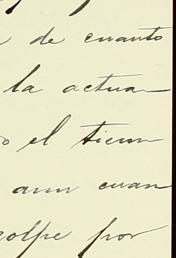 de cuanto
la actua
el tiem
aun cuan
golpe por